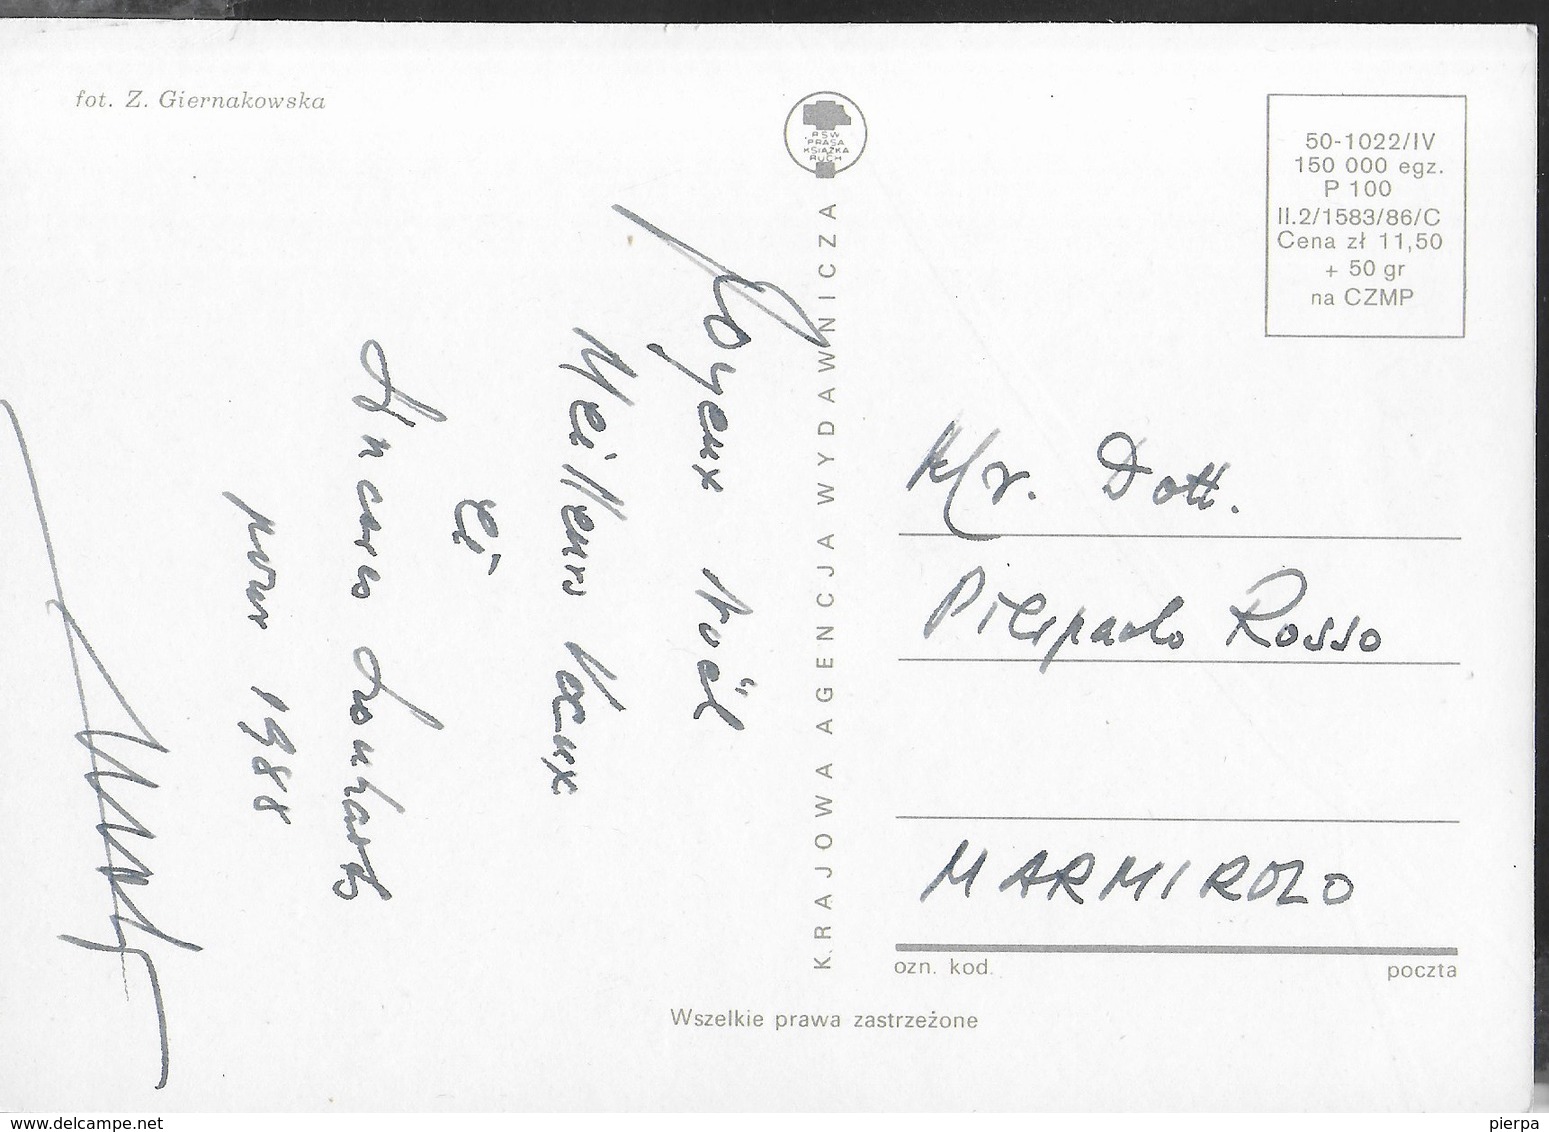 fot. Z. Giernakowska
RSW
PRASA
KSIĄŻKA
RUCH
KRAJOWA AGENCJA WYDAWNICZA
50-1022/IV
150 000 egz.
P 100
II.2/1583/86/C
Cena zł 11,50
+ 50 gr
na CZMP
Joyeux Noël
Meilleurs Vœux
et
Sincères Souhaits
pour 1988
Mr. Dott.
Pierpaolo Rosso
MARMIROLO
ozn. kod.
poczta
Wszelkie prawa zastrzeżone
www.delcampe.net
pierpa